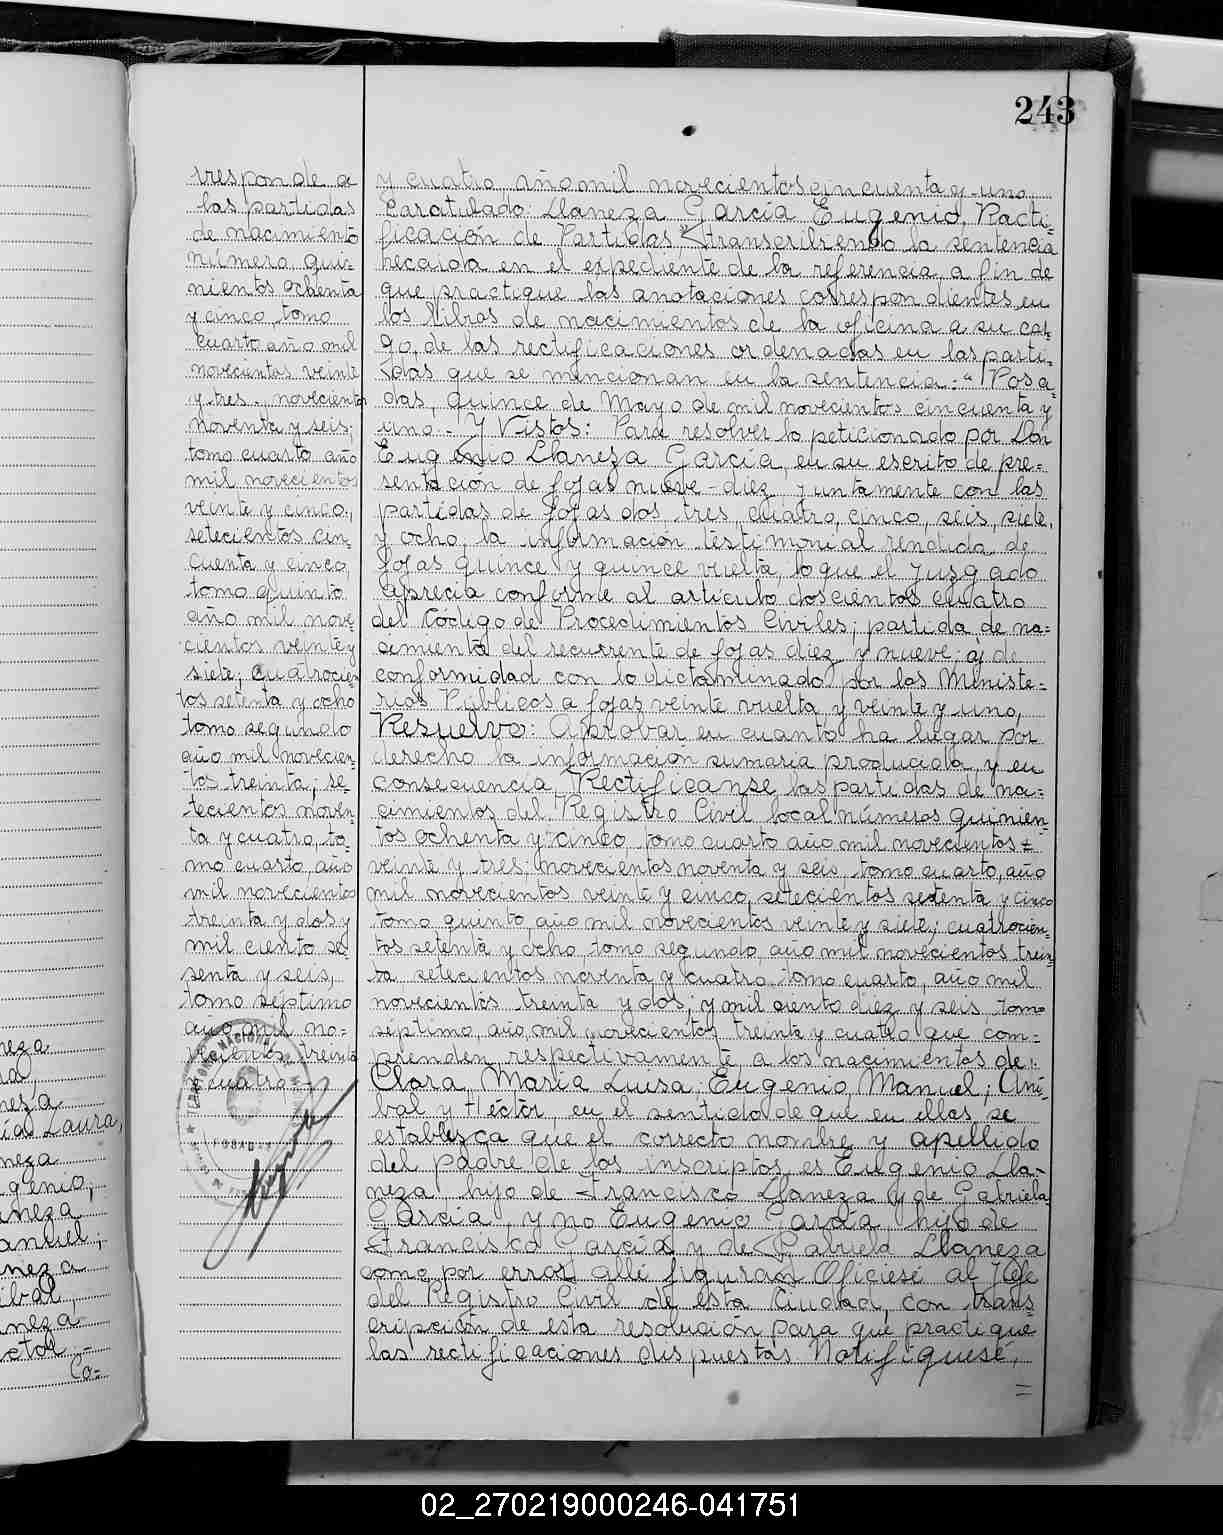 243
rresponde a
las partidas
de nacimiento
número qui-
nientos ochenta
y cinco, tomo
cuarto año mil
novecientos veinte
y tres. novecientos
noventa y seis;
tomo cuarto año
mil novecientos
veinte y cinco,
setecientos cin-
cuenta y cinco,
tomo quinto
año mil nove-
cientos veinte y
siete; cuatrocien
tos setenta y ocho
tomo segundo
año mil novecien-
tos treinta; se-
tecientos noven-
ta y cuatro, to-
mo cuarto, año
mil novecientos
treinta y dos y
mil ciento se
senta y seis,
tomo séptimo
año mil no-
vecientos treinta
y cuatro
y cuatro, año mil novecientos cincuenta y uno
Caratulado: Llaneza García Eugenio, Racti-
ficación de Partidas" transcribiendo la sentencia
recaida en el expediente de la referencia, a fin de
que practique las anotaciones correspondientes, en
los libros de nacimientos de la oficina a su car-
go, de las rectificaciones ordenadas en las parti-
das que se mencionan en la sentencia: "Posa
das, quince de Mayo de mil novecientos cincuenta y
uno. Y Vistos: Para resolver lo peticionado por Don
Eugenio Llaneza García, en su escrito de pre-
sentación de fojas nueve-diez, juntamente con las
partidas de fojas dos, tres, cuatro, cinco, seis, siete,
y ocho, la información testimonial rendida de
fojas quince y quince vuelta, lo que el Juzgado
aprecia conforme al artículo doscientos cuatro
del Código de Procedimientos Civiles; partida de na-
cimiento del recurrente de fojas diez y nueve; y de
conformidad con lo dictaminado por los Ministe-
rios Públicos a fojas veinte vuelta y veinte y uno,
Resuelvo: Aprobar en cuanto ha lugar por
derecho la información sumaria producida y en
consecuencia, Rectificanse las partidas de na-
cimientos del Registro Civil local números quinien-
tos ochenta y cinco, tomo cuarto año mil novecientos
veinte y tres; novecientos noventa y seis, tomo cuarto, año
mil novecientos veinte y cinco, setecientos setenta y cinco
tomo quinto, año mil novecientos veinte y siete; cuatrocien-
tos setenta y ocho, tomo segundo, año mil novecientos trein-
ta, setecientos noventa y cuatro, tomo cuarto, año mil
novecientos treinta y dos; y mil ciento diez y seis, tomo
séptimo, año mil novecientos treinta y cuatro que com-
prenden respectivamente a los nacimientos de:
Clara, María Luisa; Eugenio, Manuel; Aní-
bal y Héctor, en el sentido de que en ellas se
establezca que el correcto nombre y apellido
del padre de los inscriptos es Eugenio Lla-
neza, hijo de Francisco Llaneza y de Gabriela
García, y no Eugenio García, hijo de
Francisco García y de Gabriela Llaneza
como por error allí figuran Ofíciese al Jefe
del Registro Civil de esta Ciudad, con trans-
cripción de esta resolución para que practique
las rectificaciones dispuestas Notifíquese,
neza
neza
ía Laura,
neza
genio;
aneza
anuel;
neza
ibal,
neza
ctor
Co-
02_270219000246-041751